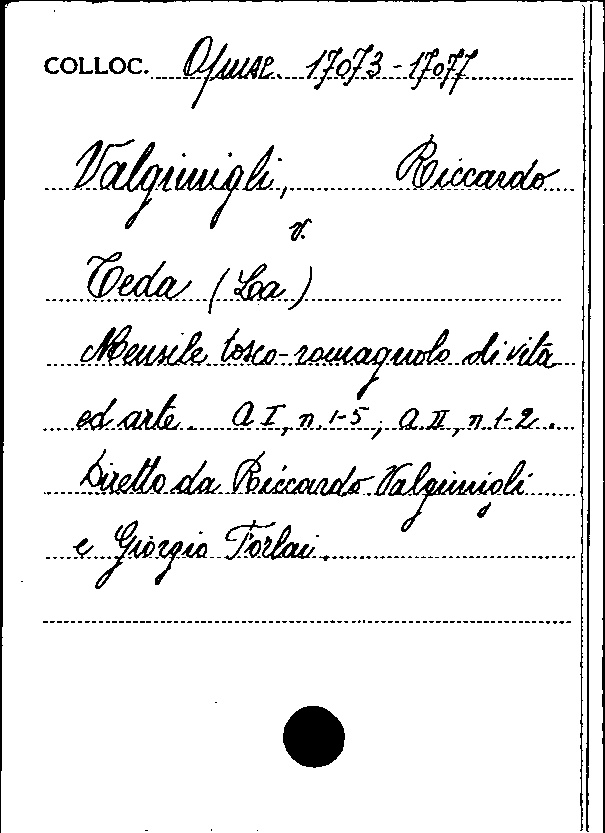 COLLOC. Opusc. 17073-17077
Valgimigli, Riccardo
v.
Teda (La)
Mensile tosco-romagnolo di vita
ed arte. A I, n. 1-5; A. II, n. 1-2.
Diretto da Riccardo Valgimigli
e Giorgio Forlai.